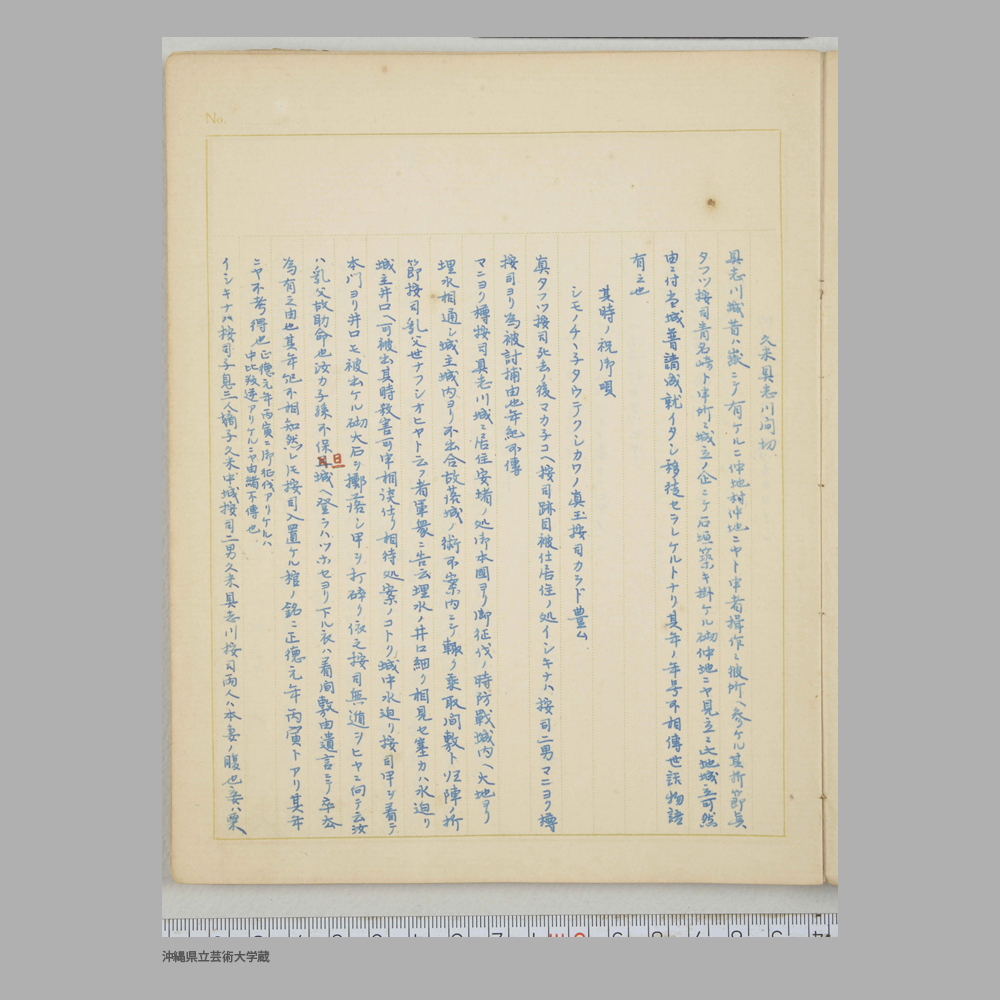 No.
久米具志川間切
具志川城昔ハ嶽ニテ有ケルニ仲地村仲地ニヤト申者操作ニ彼所ヘ参ケル其折節真
タフツ按司青名崎ト申所ニ城立ノ企ニテ石垣築キ掛ケル砌仲地ニヤ見立ニ此地城立可然
由ニ付当城普請成就イタシ移徒セラレケルトナリ其年ノ年号不相傳世話物語
有之也
其時ノ祝御唄
シモノチヽ子タウテクシカワノ真玉按司カシド豊ム
真タフツ按司死去ノ後マカ子コヘ按司跡目被仕居住ノ処イシキナハ按司二男マニヨリ樽
按司ヨリ為被討捕由也年紀不傳
マニヨリ樽按司具志川城ニ居住安堵ノ処御本國ヨリ御征伐ノ時防戰城内ヘ大地ヨリ
埋水相通シ城主城内ヨリ不出合故落城ノ術不案内ニテ輙ク乗取間敷ト归陣ノ折
節按司乳父世ナフシオヒヤト云フ者軍衆ニ告云埋水ノ井口細ク相見セ塞カハ水迫リ
城主井口ヘ可被出其時殺害可申相談仕リ相待処案ノコトク城中水迫リ按司甲ヲ着テ
本門ヨリ井口ヱ被出ケル砌大石ヲ擲落シ甲ヲ打碎ク依之按司無道ヲヒヤニ向テ云汝
ハ乳父故助命也汝カ子孫不保且城ヘ登ラハツホセヨリ下ル衣ハ着間敷由遺言ニテ卒去
旦
為有之由也其年紀不相知然レ圧按司入置ケル棺ノ銘ニ正德元年丙寅トアリ其年
ニヤ不考得也正德元年丙寅ニ御征伐アリケルハ
中比殺逆アリケルニヤ由諸不傳也
イシキナハ按司子息三人嫡子久米中城按司二男久米具志川按司両人ハ本妻ノ腹也妾ハ粟
沖縄県立芸術大学蔵